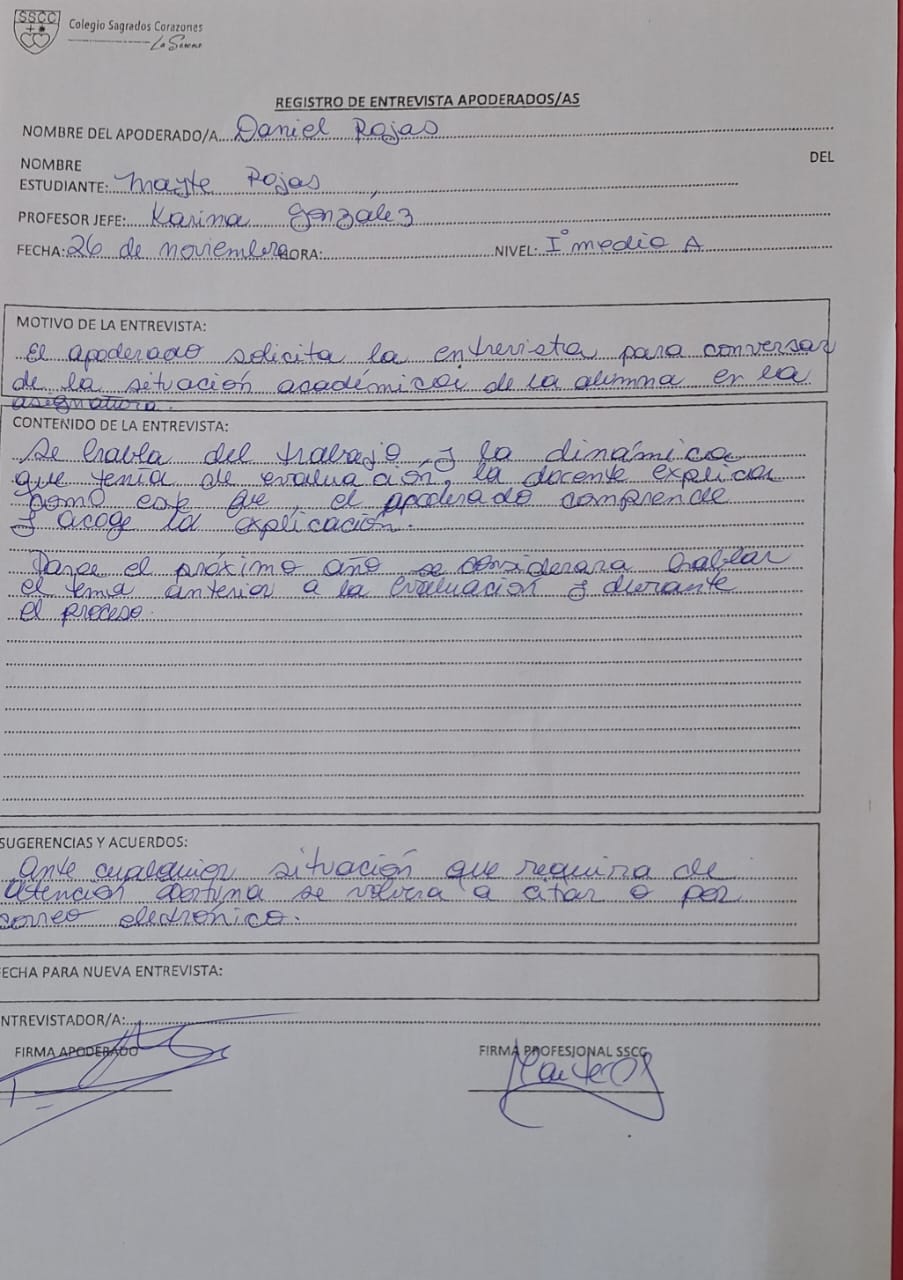 SSCC
Colegio Sagrados Corazones
La Serena
REGISTRO DE ENTREVISTA APODERADOS/AS
NOMBRE DEL APODERADO/A Daniel Rojas
NOMBRE DEL
ESTUDIANTE: Mayte Rojas
PROFESOR JEFE: Karima Gonzalez
FECHA: 26 de noviembre HORA: NIVEL: I° medio A
MOTIVO DE LA ENTREVISTA:
El apoderado solicita la entrevista para conversar
de la situación académica de la alumna en la
asignatura.
CONTENIDO DE LA ENTREVISTA:
Se habla del trabajo y la dinámica
que tenía de evaluación, la docente explica
como este que el apoderado comprende
y acoge la explicación.
el próximo año se considerara hablar
el tema anterior a la evaluación y durante
el proceso.
SUGERENCIAS Y ACUERDOS:
Ante cualquier situación que requira de
atención oportuna se volvera a citar o por
correo electrónico.
FECHA PARA NUEVA ENTREVISTA:
ENTREVISTADOR/A:
FIRMA APODERADO FIRMA PROFESIONAL SSCC